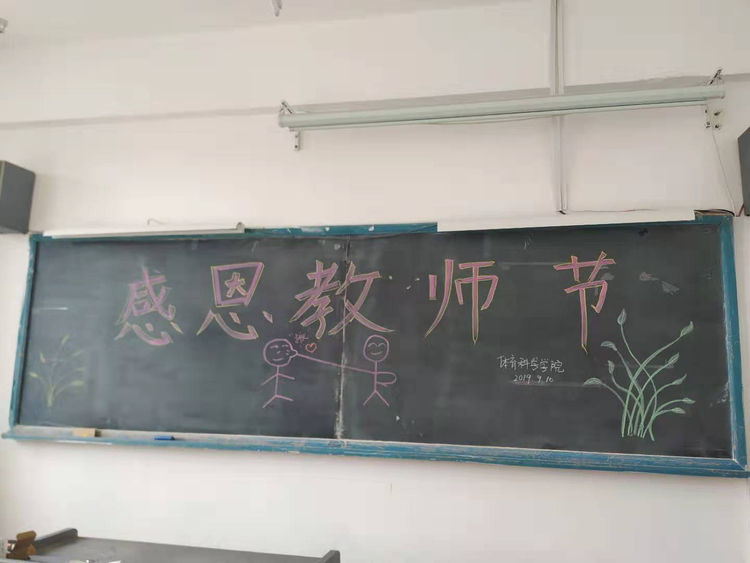 感恩教师节
体育科学学院
2019.9.10